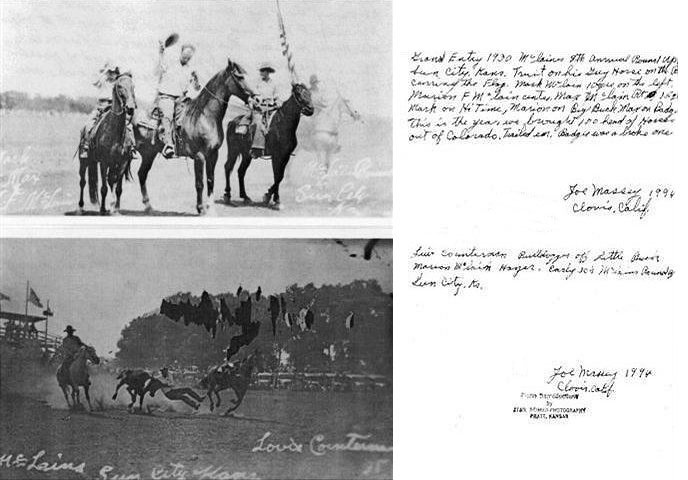 Grand Entry 1930 McLains 8th Annual Round Up
Sun City, Kans. Truit on his Guy Horse on the
carring the Flag. Mark McLain 10 yrs on the left
Marion F McLain center, Max McLain Rt
Mark on Hi Time, Marion on Big Buck, Max on Badge
This is the year we brought 150 head of Horses
out of Colorado. Trailed em. Badge was a broke one
Joe Massey 1994
Clovis, Calif.
Counterman Bulldogger off Little Buck
Marion McLain Hazer. Early 30s McLains Roundup
Sun City, Ks.
Joe Massey 1994
Clovis, Calif
by
PHOTOGRAPHY
PRATT, KANSAS
Sun City
McLains
Sun City Kans
Louis Counterman